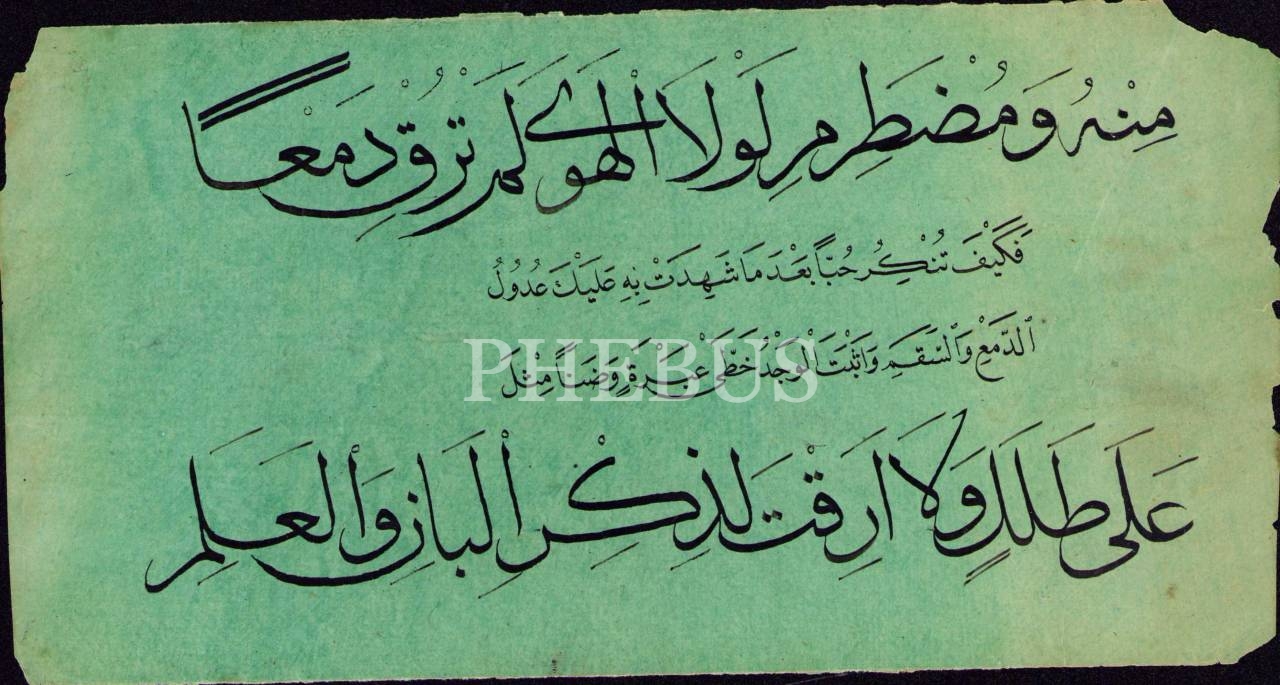 مِنْهُ وَمُضْطَرِمِ لَوْلَا الْهَوَى لَمْ تَرُقْ دَمْعًا
فَكَيْفَ تُنْكِرُ حُبًّا بَعْدَ مَا شَهِدَتْ بِهِ عَلَيْكَ عُدُولُ
الدَّمْعِ وَالسَّقَمِ وَاثْبَتَ الْوَجْدُ خَطَّى عَبْرَةٍ وَضَنًا مِثْلَ
PHEBUS
عَلَى طَلَلٍ وَلَا اَرِقْتَ لِذِكْرِ الْبَانِ وَالْعَلَمِ